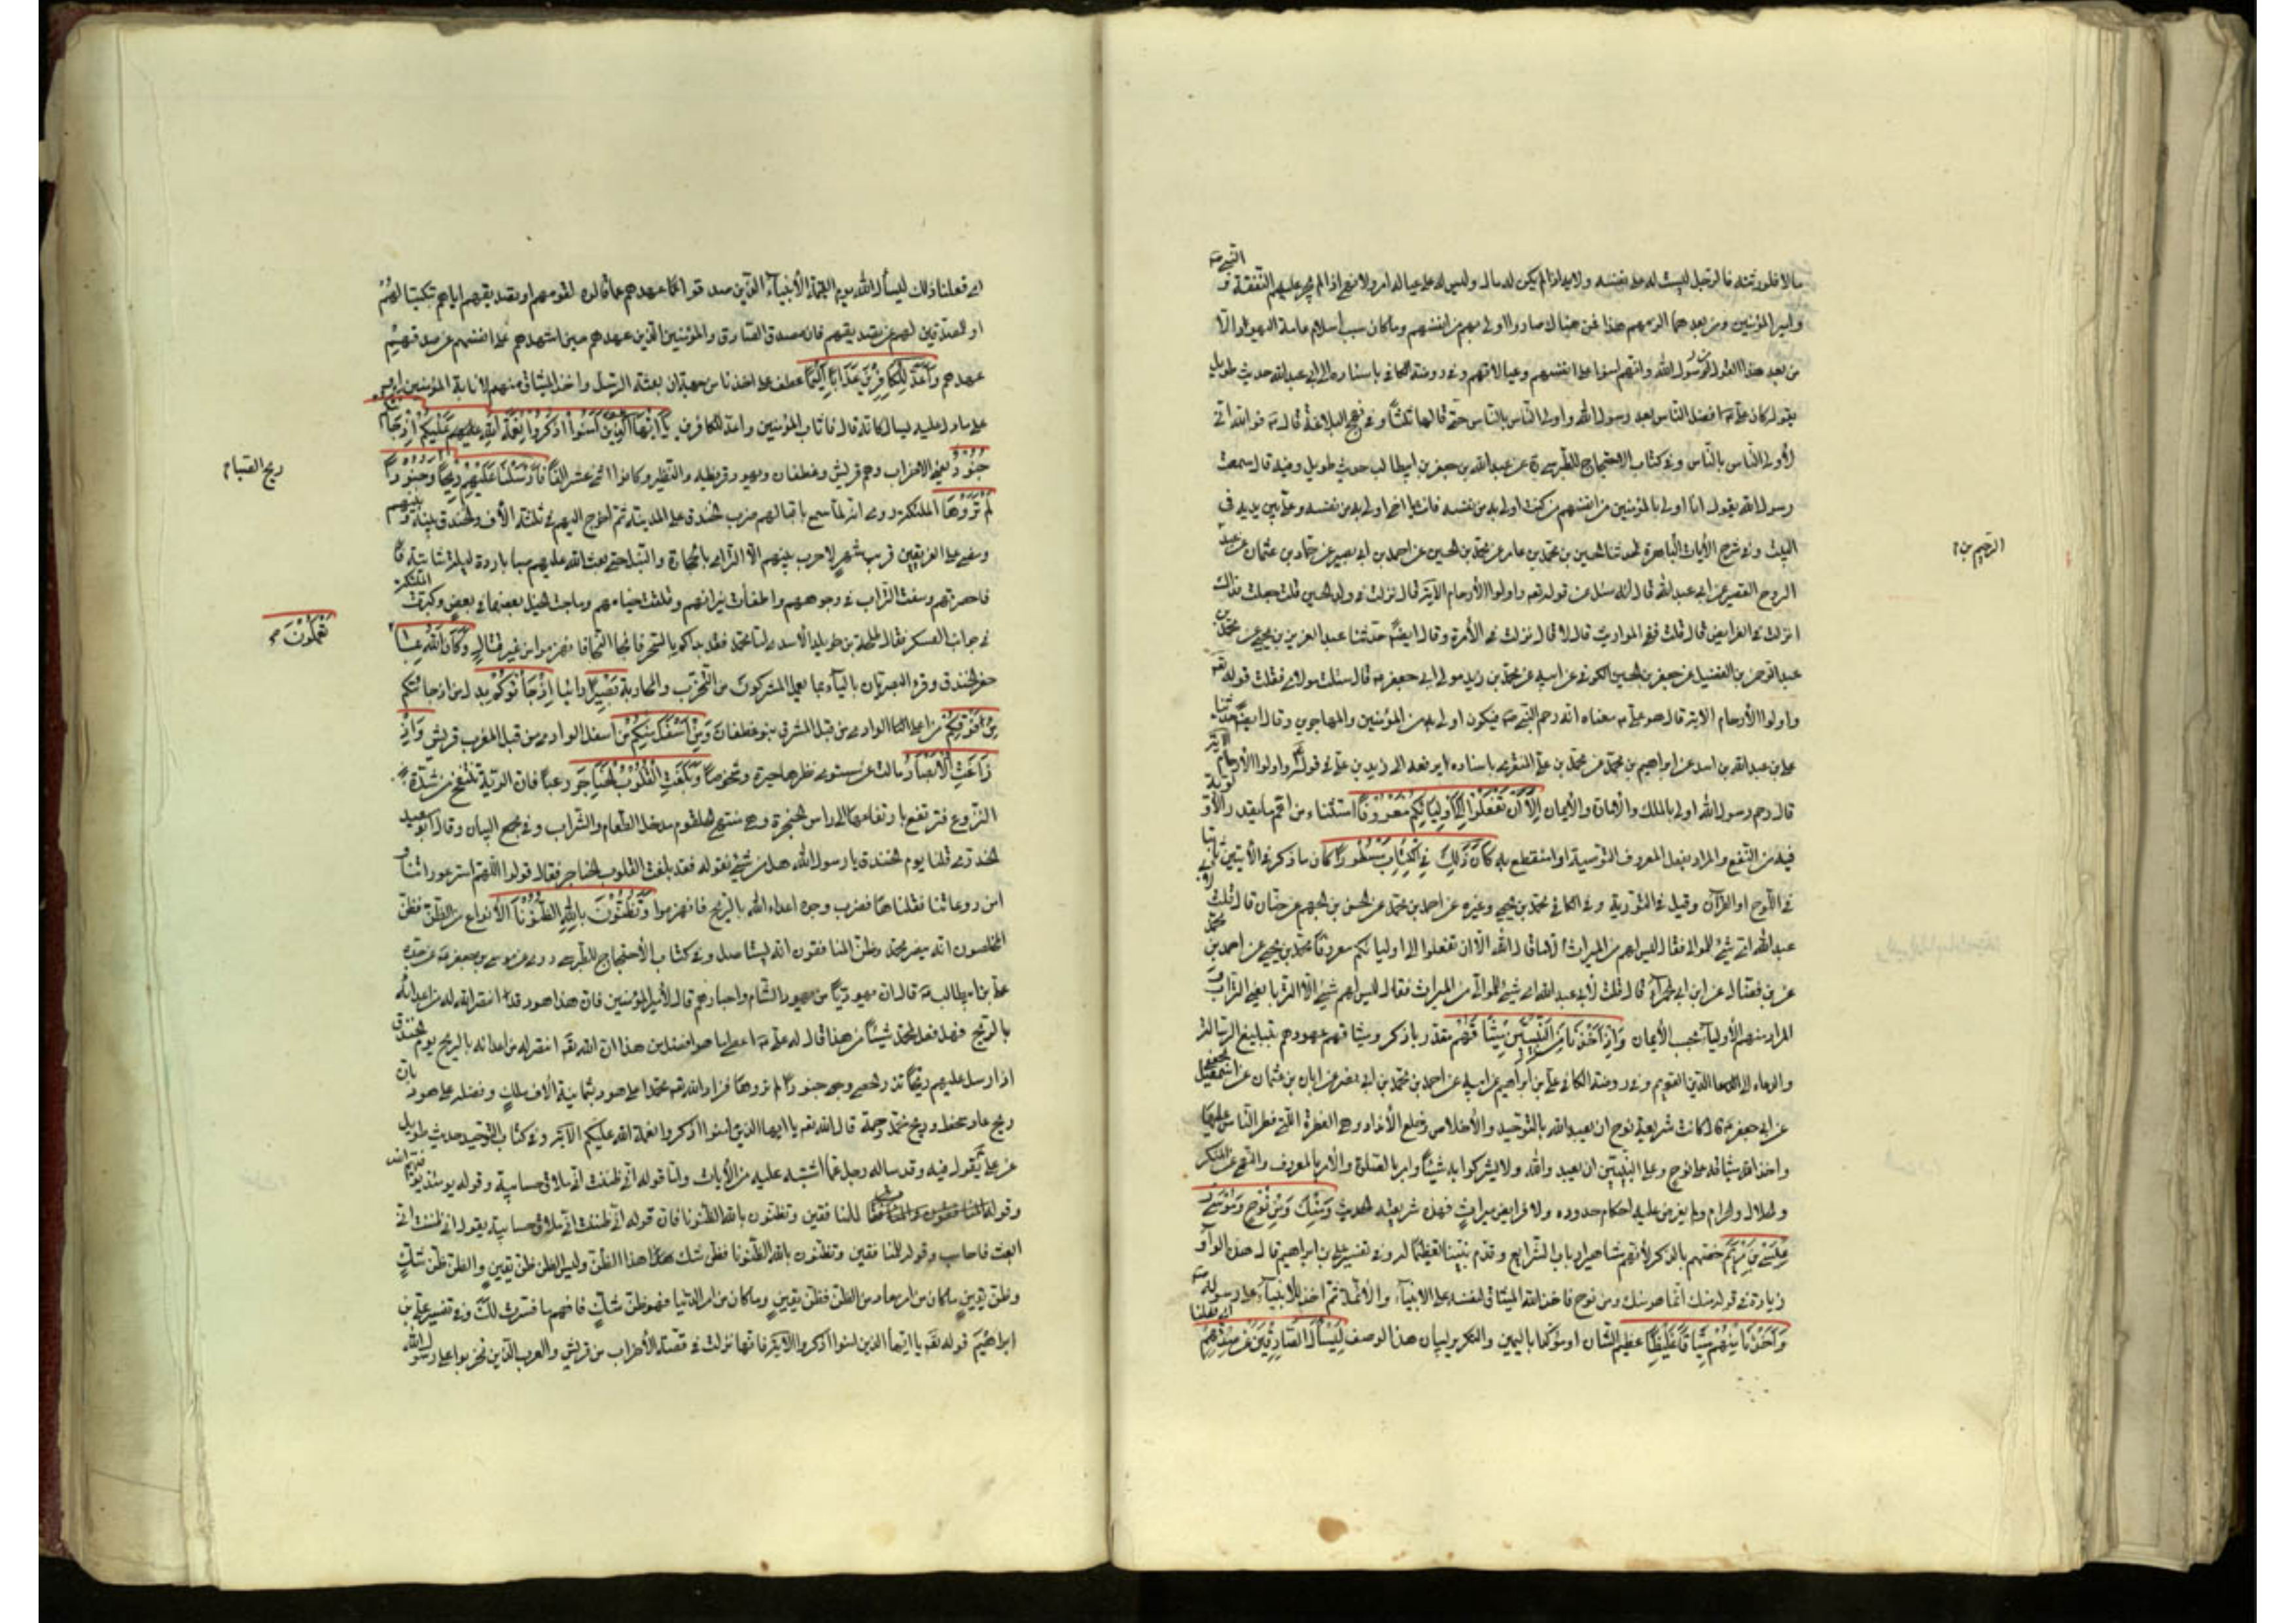 مالا فلورثته فالرجل ليست له على نفسه ولاية اذا لم يكن له مال وليس له على عياله امر ولا نهي اذا لم يجر عليهم النفقة و
النبي ص
وامير المؤمنين ومن بعدهما الزمهم هذا فمن هناك صاروا اولى بهم من انفسهم وما كان سبب اسلام عامة اليهود الا
من بعد هذا القول من رسول الله وانهم امنوا على انفسهم وعيالاتهم وفي روضة الكافي باسناده الى ابي عبد الله حديث طويل
يقول كان علي افضل الناس بعد رسول الله واولى الناس بالناس حتى قالها ثلثا وفي نهج البلاغة قال فوالله اني
لأولى الناس بالناس وفي كتاب الاحتجاج للطبرسي عن عبد الله بن جعفر بن ابيطالب حديث طويل وفيه قال سمعت
رسول الله يقول انا اولى بالمؤمنين من انفسهم من كنت اولى به من نفسه فانت يا اخي اولى به من نفسه وعلي بين يديه في
البيت وفي شرح الأيات الباهرة حدثنا الحسين بن محمد بن عامر عن محمد بن الحسين عن احمد بن ابي نصير عن حماد بن عثمان عن عبد
الرحيم بن
الروح القصير عن ابي عبد الله قال انه سئل عن قوله تعه واولوا الأرحام الآية قال نزلت في ولد الحسين قلت جعلت فداك
انزلت في الفرايض قال لا قلت ففي المواريث قال لا قال نزلت في الأمرة وقال ايضا حدثنا عبد العزيز بن يحيى عن محمد بن
عبد الرحمن بن الفضيل عن جعفر بن الحسين الكوفي عن ابيه عن محمد بن زيد مولى ابي جعفر قال سئلت مولاي فقلت قوله تعه
واولوا الأرحام الاية قال هو علي معناه انه رحم النبي ص فيكون اولى به من المؤمنين والمهاجرين وقال ايضا حدثنا
علي بن عبد الله بن اسد عن ابراهيم بن محمد عن محمد بن علي المقري باسناده يرفعه الى زيد بن علي في قوله تعه واولوا الأرحام الاية
قال رحم رسول الله اولى بالملك والأمان والأيمان إِلَّا أَنْ تَفْعَلُوا إِلَى أَوْلِيَائِكُمْ مَعْرُوفًا استثناء من اعم ما يقدر الأولوية
فيه من النفع والمراد بفعل المعروف التوصية او استقطع به كَانَ ذَلِكَ فِي الْكِتَابِ مَسْطُورًا كان ما ذكر في الأيتين ثابتا
في اللوح او القرآن وقيل في التورية وفي الكافي محمد بن يحيى وغيره عن احمد بن محمد عن الحسن بن الجهم عن حنان قال قلت لأبي
عبد الله اي شيء للموالي فقال ليس لهم من الميراث الا ما قال الله الا ان تفعلوا الى اوليائكم معروفا محمد بن يحيى عن احمد بن محمد
عن بن فضال عن ابن ابي الحمراء قال قلت لأبي عبد الله اي شيء للموالي من الميراث فقال ليس لهم شيء الا الترباء يعني التراب و
المراد منهم الأولياء بحسب الأيمان وَإِذْ أَخَذْنَا مِنَ النَّبِيِّينَ مِيثَاقَهُمْ مقدر باذكر وميثاقهم عهودهم بتبليغ الرسالة
والدعاء الى الدين القويم وفي روضة الكافي علي بن ابراهيم عن ابيه عن احمد بن محمد بن ابي نصر عن ابان بن عثمان عن اسمعيل الجعفي
عن ابي جعفر قال كانت شريعة نوح ان يعبد الله بالتوحيد والأخلاص وخلع الأنداد وهي الفطرة التي فطر الناس عليها
واخذ الله ميثاقه على نوح وعلى النبيين ان يعبدوا الله ولا يشركوا به شيئا وامر بالصلوة والأمر بالمعروف والنهي عن المنكر
والحلال والحرام ولم يفرض عليه احكام حدوده ولا فرايض ميراث فهذه شريعته الحديث وَمِنْكَ وَمِنْ نُوحٍ وَمُوسَى وَ
عِيسَى بْنِ مَرْيَمَ خصهم بالذكر لأنهم مشاهير ارباب الشرايع وقدم نبينا تعظيما له وفي تفسير علي بن ابراهيم قال هذه الواو
زيادة في قوله ومنك انما هو منك ومن نوح فاخذ الله الميثاق لنفسه على الانبياء والأئمة ثم اخذ للأنبياء على رسوله ص
وَأَخَذْنَا مِنْهُمْ مِيثَاقًا غَلِيظًا عظيم الشان او مؤكدا باليمين والتكرير لبيان هذا الوصف لِيَسْأَلَ الصَّادِقِينَ عَنْ صِدْقِهِمْ
اي فعلنا
اي فعلنا ذلك ليسأل الله يوم القيمة الأنبياء الذين صدقوا عهدهم عما قالوه لقومهم او تصديقهم اياهم تبكيتا لهم
او المصدقين لهم عن تصديقهم فان مصدق الصادق والمؤمنين الذين عهدهم حين اشهدهم على انفسهم عن صدقهم
عهدهم وَأَعَدَّ لِلْكَافِرِينَ عَذَابًا أَلِيمًا عطف على اخذنا من جهة ان بعثة الرسل واخذ الميثاق منهم لأثابة المؤمنين او
على ما دل عليه ليسأل كانه قال فاثاب المؤمنين واعد للكافرين يَا أَيُّهَا الَّذِينَ آمَنُوا اذْكُرُوا نِعْمَةَ اللَّهِ عَلَيْكُمْ إِذْ جَاءَتْكُمْ
جُنُودٌ يعني الأحزاب وهم قريش وغطفان ويهود قريظة والنظير وكانوا اثني عشر الفا فَأَرْسَلْنَا عَلَيْهِمْ رِيحًا وَجُنُودًا
ريح الصبا
لَمْ تَرَوْهَا الملئكة روي انه لما سمع باقبالهم ضرب الخندق على المدينة ثم اخرج اليهم في ثلثة الأف والخندق بينه وبينهم
ومضى على الفريقين قريب شهر لا حرب بينهم الا الترامي بالحجارة والنبل حتى بعث الله عليهم صبا باردة في ليلة شاتية
فاحصرتهم وسفت التراب في وجوههم واطفأت نيرانهم وقلعت خيامهم وماجت الخيل بعضها في بعض وكبرت الملئكة
في جوانب العسكر فقال طلحة بن خويلد الأسدي اما محمد فقد بدأكم بالسحر فالنجا النجا فانهزموا من غير قتال وَكَانَ اللَّهُ بِمَا
تَعْمَلُونَ
حفر الخندق وقرء البصريان بالياء بما يعمل المشركون من التحزب والمحاربة بَصِيرًا رائيا إِذْ جَاءُوكُمْ بدل من اذ جائتكم
مِنْ فَوْقِكُمْ من اعلى الوادي من قبل المشرق بنو غطفان وَمِنْ أَسْفَلَ مِنْكُمْ من اسفل الوادي من قبل المغرب قريش وَإِذْ
زَاغَتِ الْأَبْصَارُ مالت عن مستوى نظرها حيرة وشخوصا وَبَلَغَتِ الْقُلُوبُ الْحَنَاجِرَ رعبا فان الرية تنتفخ من شدة
الروع فترتفع بارتفاعها الى راس الحنجرة وهي منتهى الحلقوم مدخل الطعام والشراب وفي مجمع البيان وقال ابو سعيد
الخدري قلنا يوم الخندق يا رسول الله هل من شيء نقوله فقد بلغت القلوب الحناجر فقال قولوا اللهم استر عوراتنا و
امن روعاتنا فقلناها فضرب وجوه اعداء الله بالريح فانهزموا وَتَظُنُّونَ بِاللَّهِ الظُّنُونَا الأنواع من الظن فظن
المخلصون انه ينصر محمد وظن المنافقون انه ليستاصل وفي كتاب الأحتجاج للطبرسي روي عن موسى بن جعفر عن جده
علي بن ابيطالب قال ان يهوديا من يهود الشام واحبارهم قال لأمير المؤمنين فان هذا هود قد انتصر الله له من اعدائه
بالريح فهل فعل لمحمد شيئا من هذا قال له علي اعطي ما هو افضل من هذا ان الله تعه انتصر له من اعدائه بالريح يوم الخندق
اذ ارسل عليهم ريحا تذر الحصى وجنودا لم تروها فزاد الله تعه محمدا على هود بثمانية ألاف ملك وفضله على هود بان
ريح عاد سخط وريح محمد رحمة قال الله تعه يا ايها الذين امنوا اذكروا نعمة الله عليكم الآية وفي كتاب التوحيد حديث طويل
عن علي يقول فيه وقد ساله رجل عما اشتبه عليه من الأيات واما قوله اني ظننت اني ملاق حسابيه وقوله يومئذ يوفيهم الله
وقوله للمنافقين وتظنون بالله الظنونا فان قوله اني ظننت اني ملاق حسابيه يقول اني ظننت اني
ابعث فاحاسب وقوله للمنافقين وتظنون بالله الظنونا فظن شك هذا الظن وليس الظن ظن يقين والظن ظن شك
وظن يقين ماكان من امر معاد من الظن فظن يقين وماكان من امر الدنيا فهو ظن شك فافهم ما فسرت لك وفي تفسير علي بن
ابراهيم قوله تعه يا ايها الذين امنوا اذكروا الاية فانها نزلت في قصة الأحزاب من قريش والعرب الذين تحزبوا على رسول الله